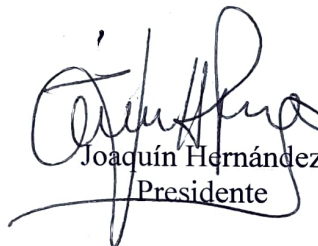 Joaquín Hernández
Presidente